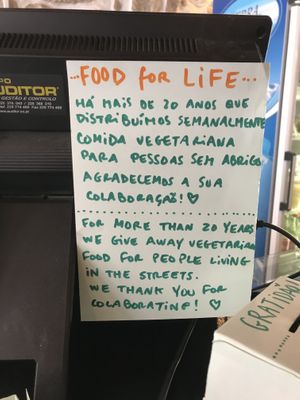 AUDITOR
GESTÃO E CONTROLO
...FOOD FOR LIFE...
HÁ MAIS DE 20 ANOS QUE
DISTRIBUÍMOS SEMANALMENTE
COMIDA VEGETARIANA
PARA PESSOAS SEM ABRIGO
AGRADECEMOS A SUA
COLABORAÇÃO! ♡
FOR MORE THAN 20 YEARS
WE GIVE AWAY VEGETARIAN
FOOD FOR PEOPLE LIVING
IN THE STREETS.
WE THANK YOU FOR
COLABORATING! ♡
GRATIDÃO